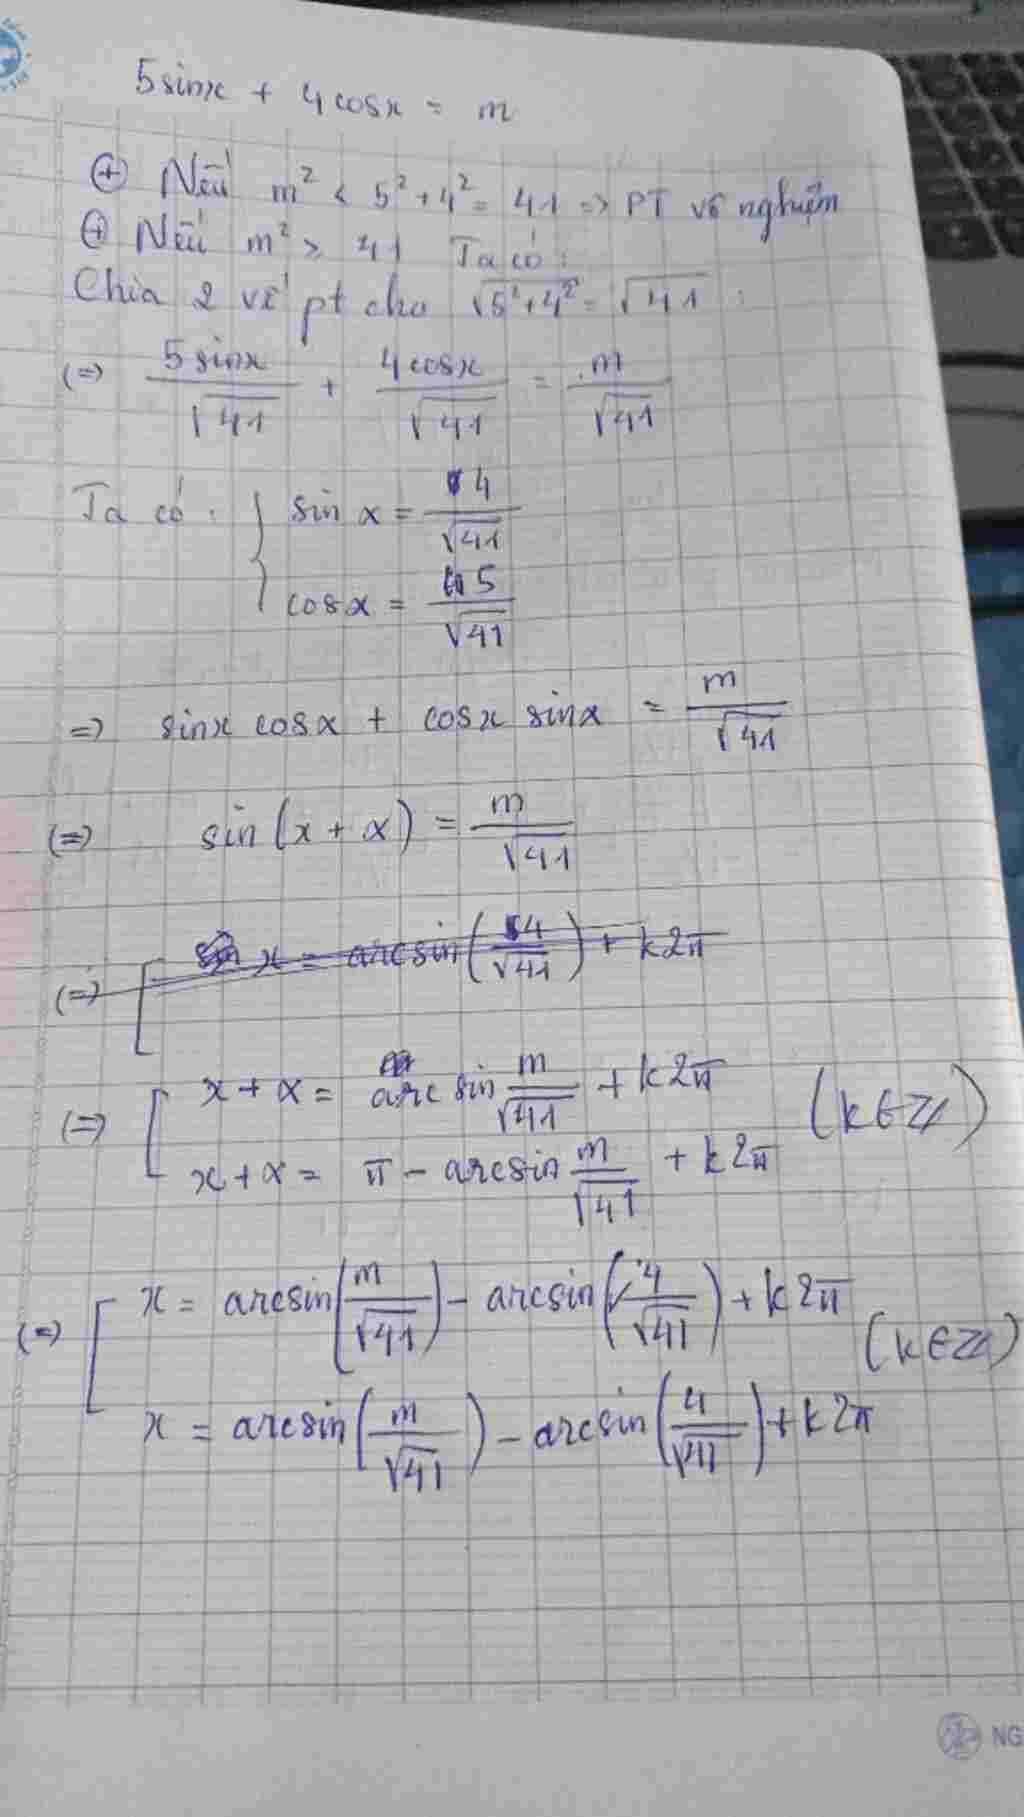 5sinx + 4cosx = m
⊕ Nếu m² < 5² + 4² = 41 => PT vô nghiệm
⊕ Nếu m² > 41 Ta có:
Chia 2 vế pt cho √(5² + 4²) = √41 :
(=) 5sinx/√41 + 4cosx/√41 = m/√41
Ta có: { sin α = 4/√41
cos α = 5/√41
=> sinx cosα + cosx sinα = m/√41
(=) sin(x + α) = m/√41
(=) [ x = arcsin(4/√41) + k2π
(=) [ x + α = arcsin m/√41 + k2π (k∈Z)
x + α = π - arcsin m/√41 + k2π
(=) [ x = arcsin(m/√41) - arcsin(4/√41) + k2π (k∈Z)
x = arcsin(m/√41) - arcsin(4/√41) + k2π
NG